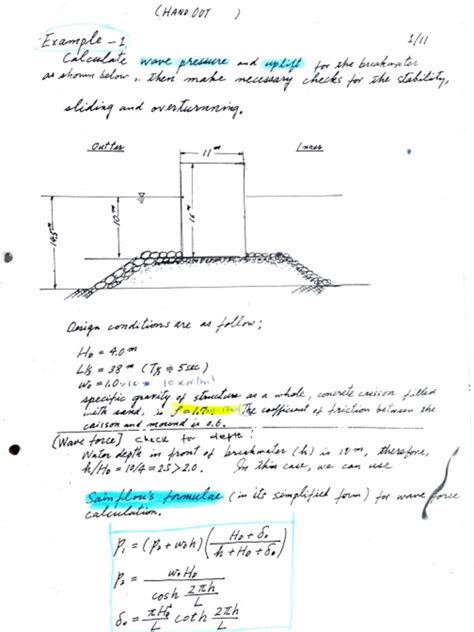 (HAND OUT )
1/11
Example - 1.
Calculate wave pressure and uplift for the breakwater
as shown below, then make necessary checks for the stability,
sliding and overturnning.
Outter
Inner
11 m
10 m
Design conditions are as follow;
H_D = 4.0 m
L = 38 m (T ≒ 5 sec)
w_0 = 1.0
specific gravity of structure as a whole, concrete caisson filled
with sand, is The coefficient of friction between the
caisson and mound is 0.6.
[Wave force] check for depth:
Water depth in front of breakwater (h) is m, therefore,
h/H_D = 10/4 = 2.5 > 2.0. In this case, we can use
Sainflou's formulae (in its simplified form) for wave force
calculation.
P_1 = (P_2 + w_0 h) ( (H_D + δ_0) / (h + H_D + δ_0) )
P_2 = w_0 H_D / cosh (2πh / L)
δ_0 = (πH_D^2 / L) coth (2πh / L)